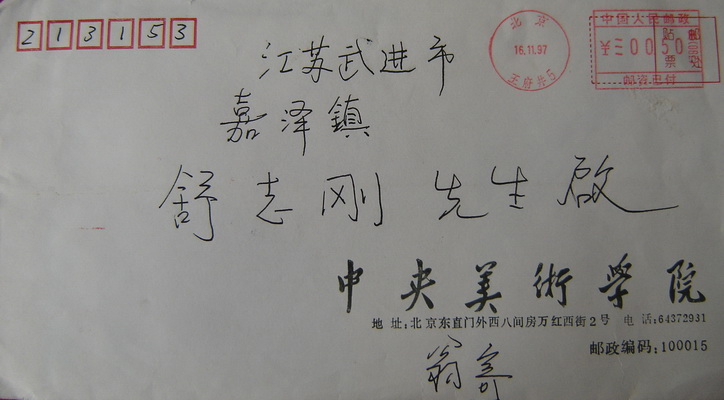 213153
北京
16.11.97
王府井5
中国人民邮政
¥三0050
邮资已付
贴票处
江苏武进市
嘉泽鎮
舒志刚 先生啟
中央美術學院
地 址:北京东直门外西八间房万红西街2号 电 话:64372931
邮政编码:100015
翁寄